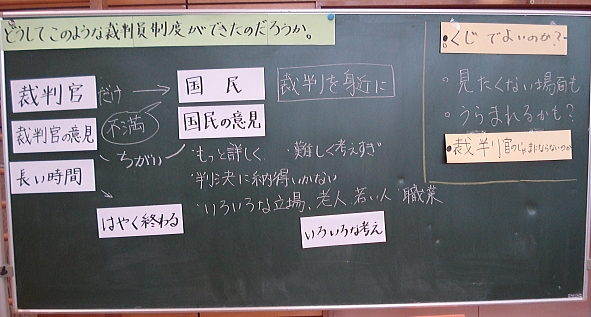 どうしてこのような裁判員制度ができたのだろうか。
裁判官だけ
国民
裁判を身近に
不満
裁判官の意見
国民の意見
ちがい
・もっと詳しく ・難しく考えすぎ
長い時間
・判決に納得いかない
・いろいろな立場、老人、若い人 職業
はやく終わる
いろいろな考え
・くじでよいのか?
・見たくない場面も
・うらまれるかも?
・裁判官のじゃまにならないのか